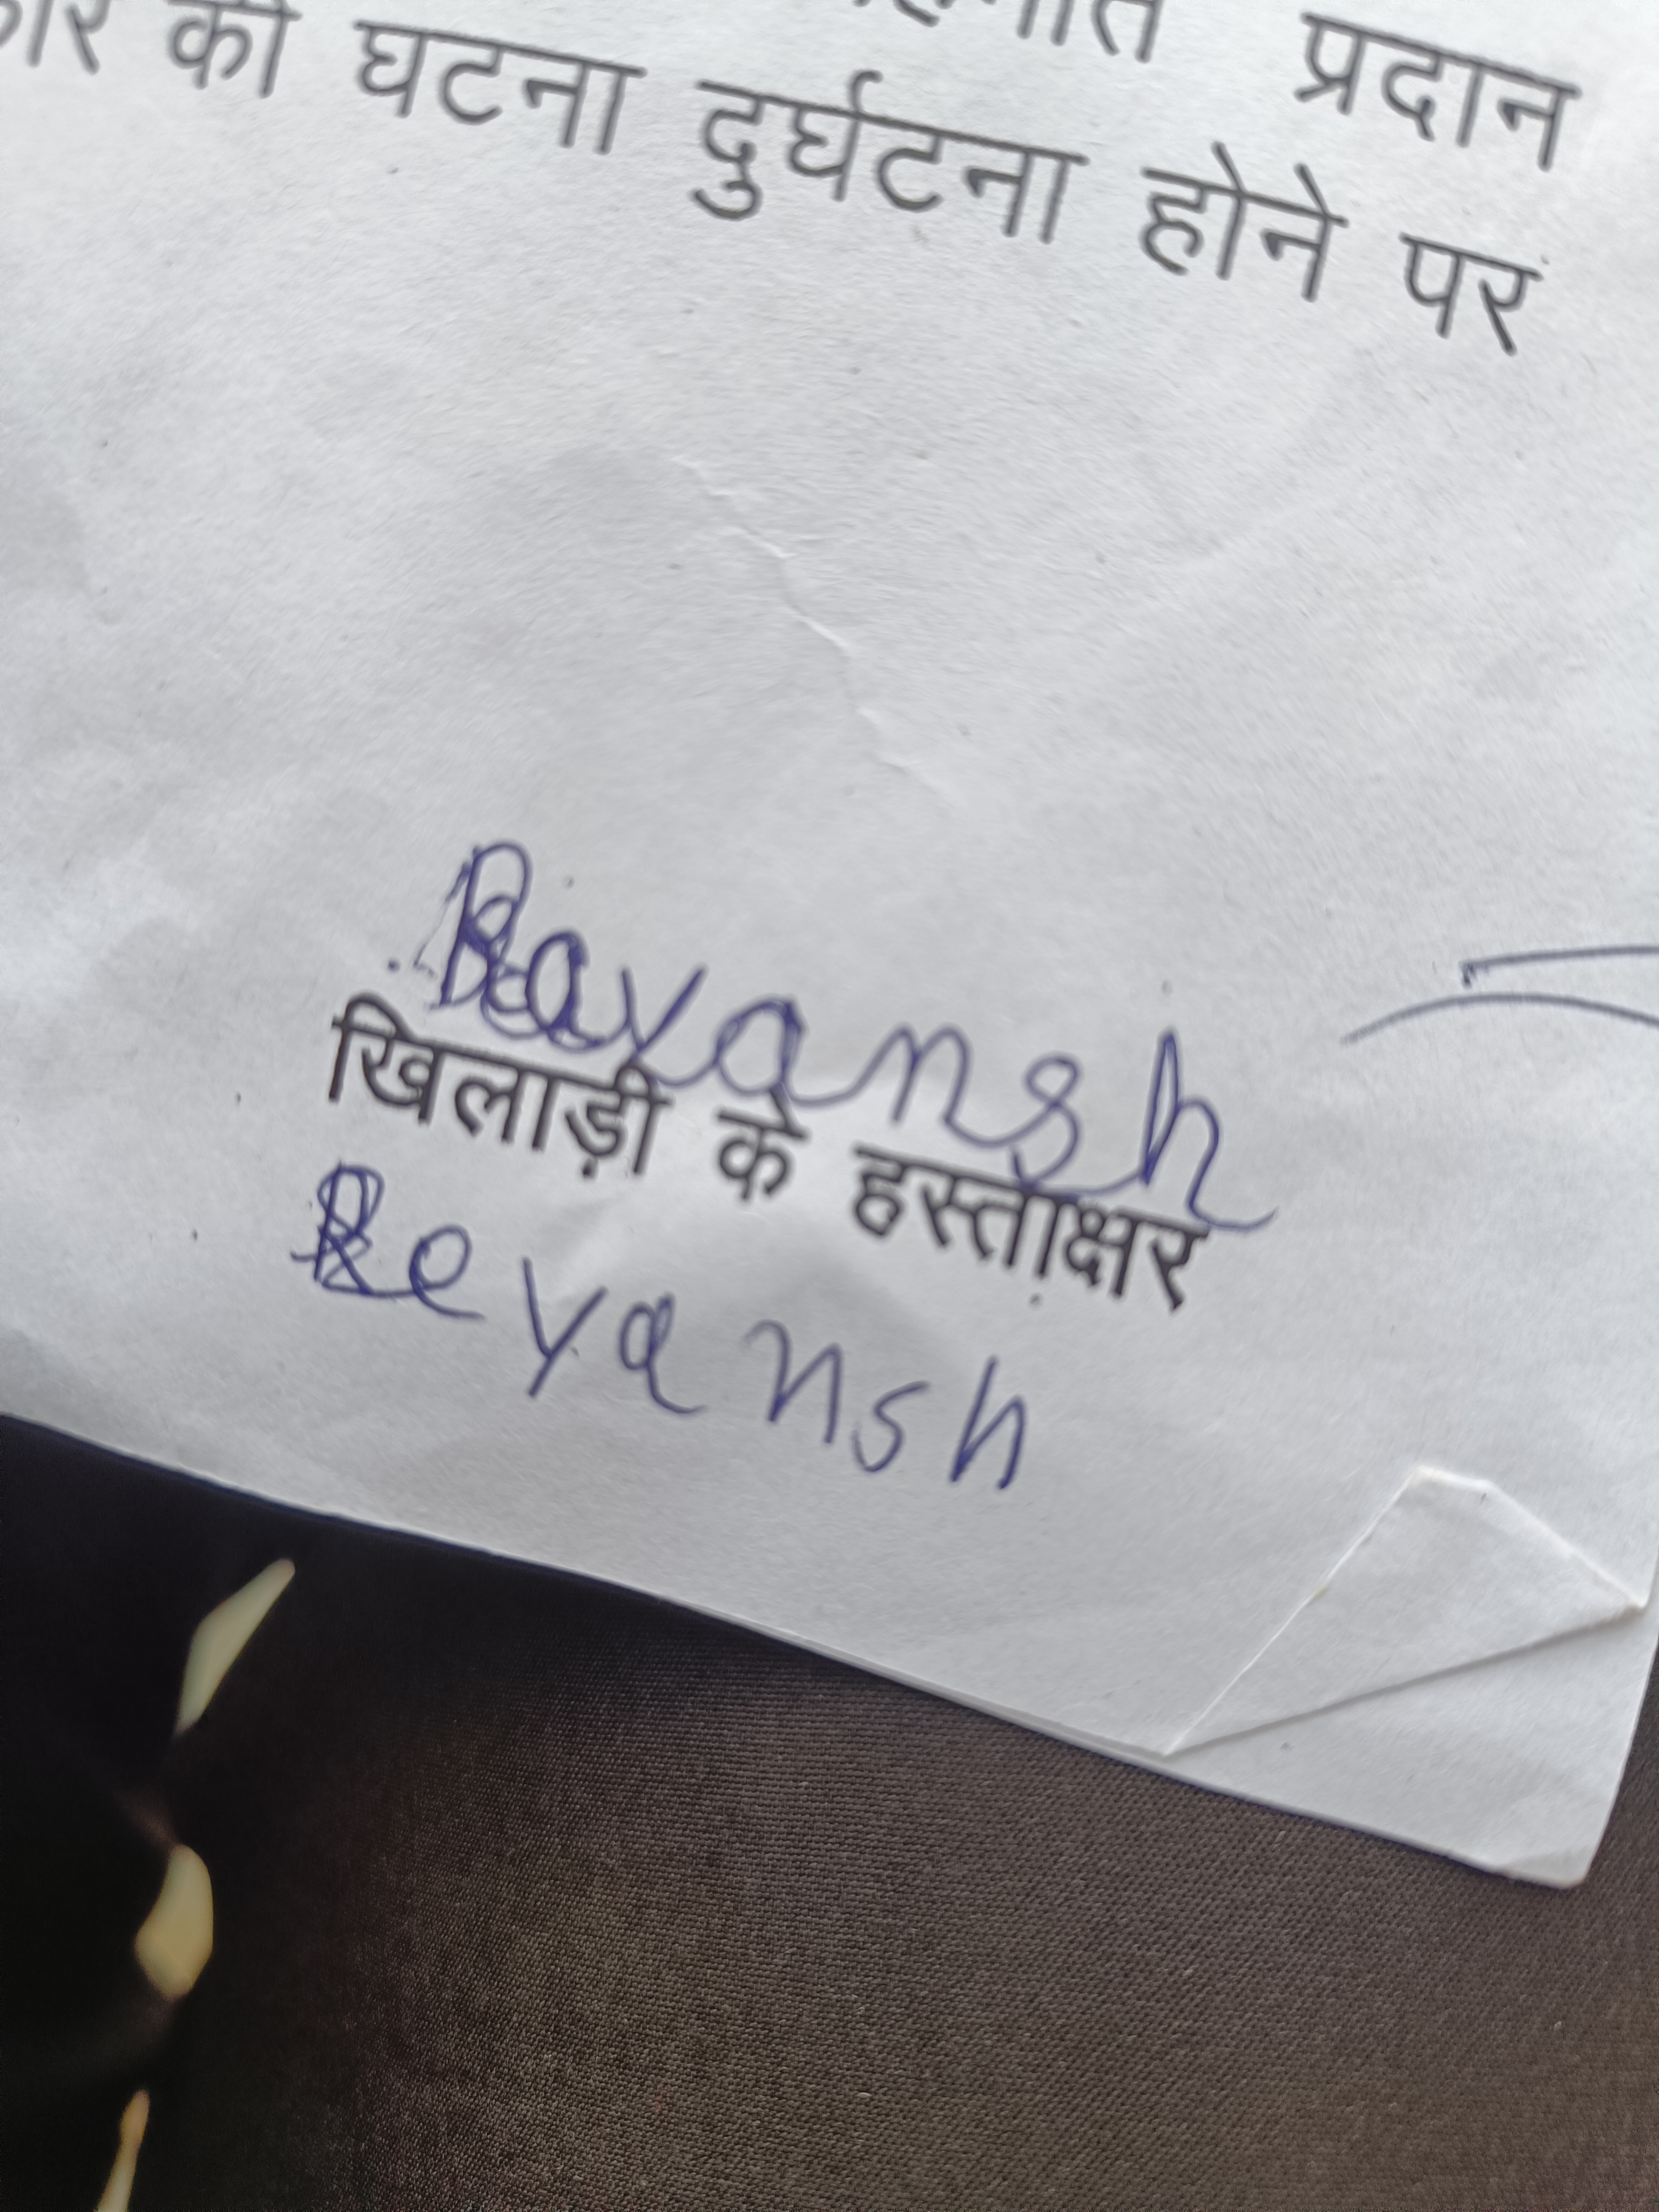 प्रदान
की घटना दुर्घटना होने पर
Rayansh
खिलाड़ी के हस्ताक्षर
Reyansh